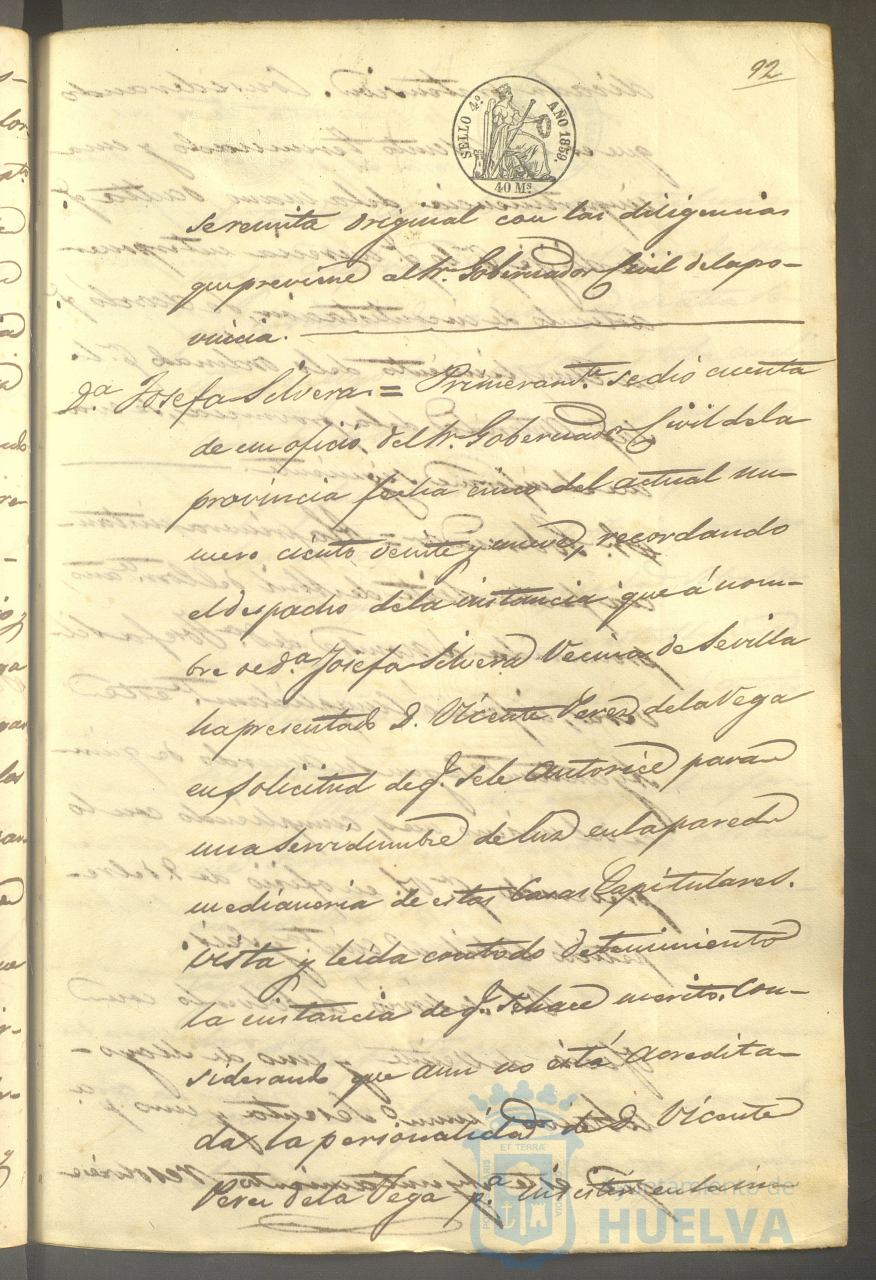 92
SELLO 4º AÑO 1859.
40 Ms
se remita original con las diligencias
que previene al Sr. Gobernador Civil de la pro-
vincia.
D.a Josefa Silvera = Primeramte. se dió cuenta
de un oficio del Sr. Gobernador Civil de la
provincia fecha cinco del actual nu-
mero ciento veinte y nueve, recordando
el despacho de la instancia que á nom-
bre de D.a Josefa Silvera Vecina de Sevilla
ha presentado D. Vicente Perez de la Vega
en solicitud de q. se le autorice para
una servidumbre de luz en la pared
medianeria de estas Casas Capitulares.
Vista y leida con todo detenimiento
la instancia de q. se hace merito. Con-
siderando que aun no está acredita-
da la personalidad de D. Vicente
Perez de la Vega p.a insistir en la ins-
Ayuntamiento de
HUELVA